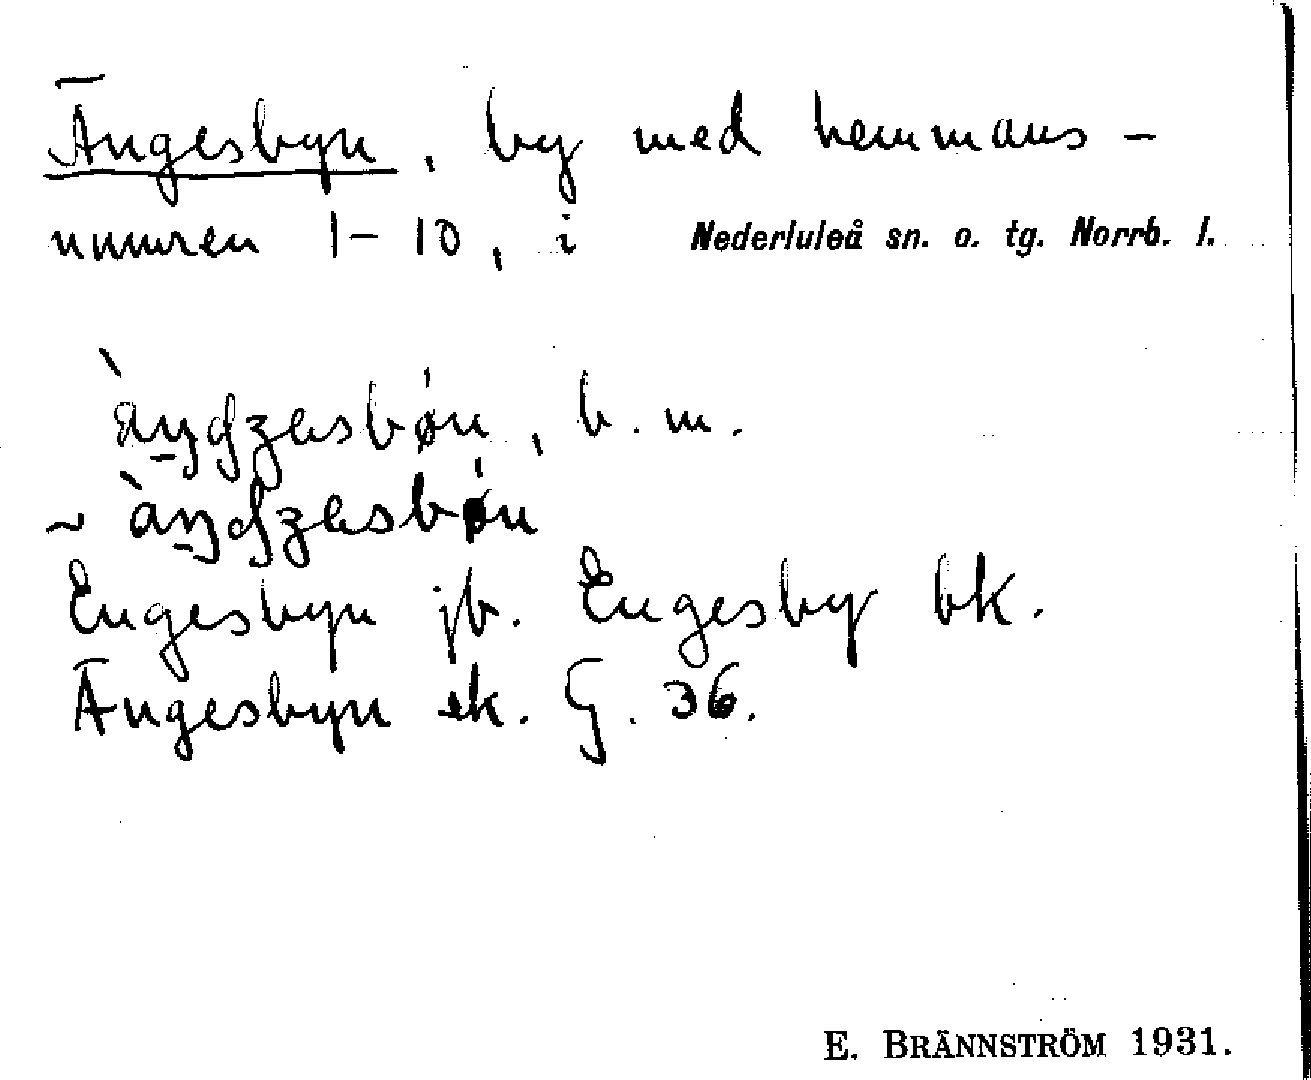 Ängesbyn, by med hemmans-
numren 1-10, i Nederluleå sn. o. tg. Norrb. l.
b. m.
~
Engesbyn jb. Engesby bk.
Ängesbyn ek. G. 36.
E. BRÄNNSTRÖM 1931.